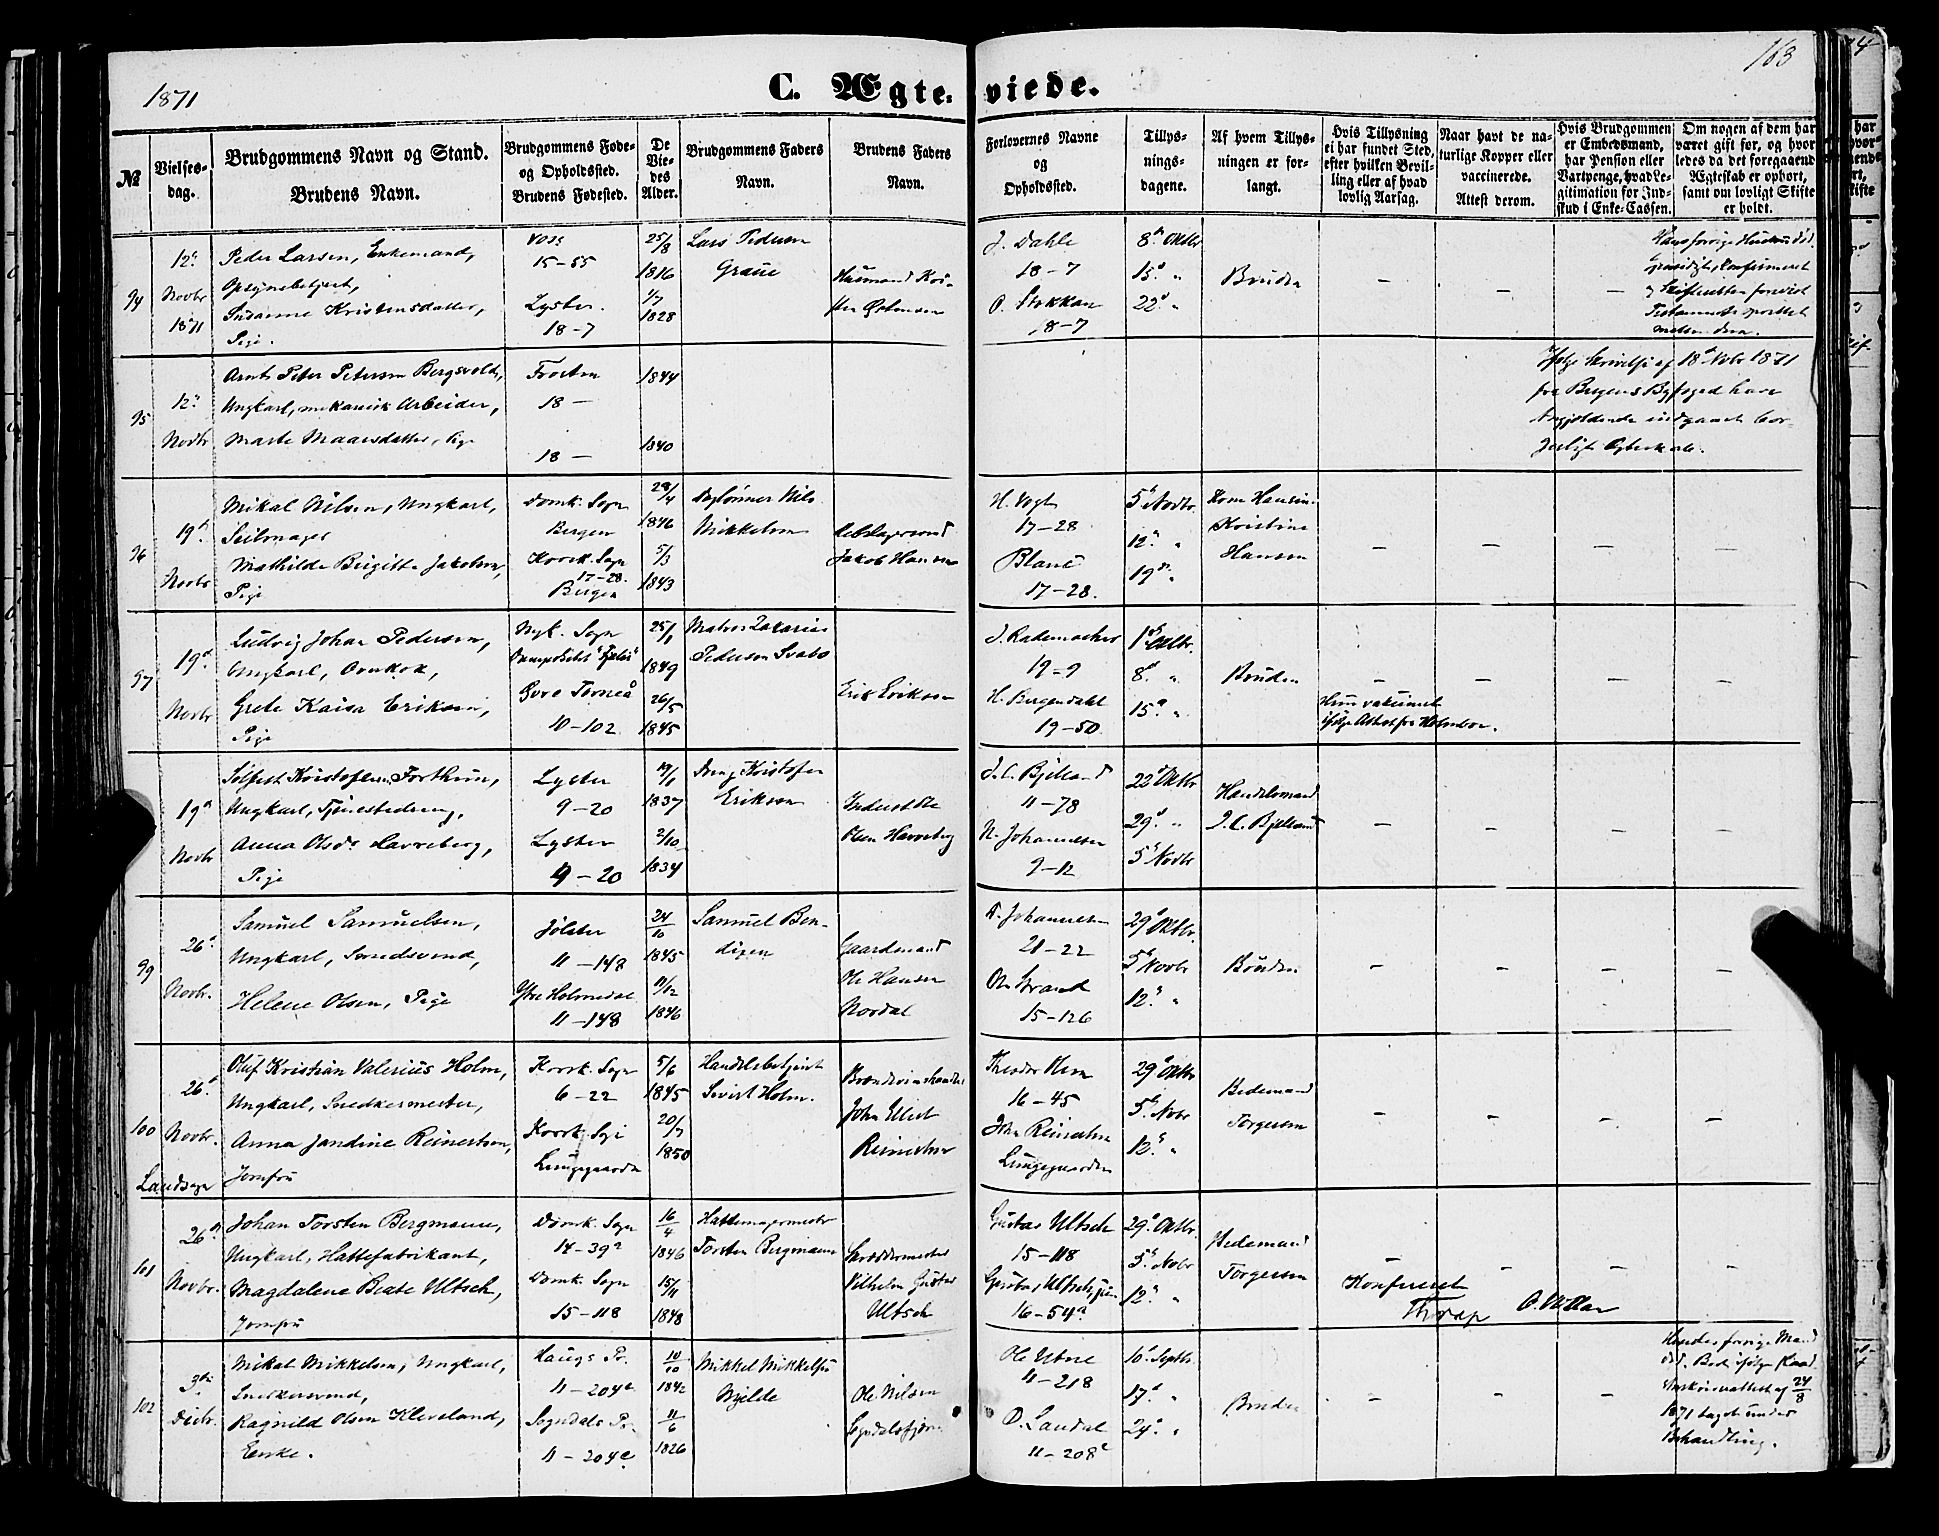 1871
C. Ægte-viede.
163
№
Vielses-
dag.
Brudgommens Navn og Stand.
Brudens Navn.
Brudgommens Føde-
og Opholdssted.
Brudens Fødested.
De
Vie-
des
Alder.
Brudgommens Faders
Navn.
Brudens Faders
Navn.
Forlovernes Navne
og
Opholdssted.
Tillys-
nings-
dagene.
Af hvem Tillys-
ningen er for-
langt.
Hvis Tillysning
ei har fundet Sted,
efter hvilken Bevil-
ling eller af hvad
lovlig Aarsag.
Naar havt de na-
turlige Kopper eller
vaccinerede.
Attest derom.
Hvis Brudgommen
er Embedsmand,
har Pension eller
Vartpenge, hvad Le-
gitimation for Ind-
skud i Enke-Cassen.
Om nogen af dem har
været gift før, og hvor-
ledes da det foregaaende
Ægteskab er ophørt,
samt om lovligt Skifte
er holdt.
94
12te
Novbr
1871
Peder Larsen, Enkemand,
Opsynsbetjent,
Susanne Kristensdatter,
Pige.
Voss
15-55
Lyster.
18-7
25/8
1816
1/7
1828
Lars Pedersen
Graue
Husmand Kri-
J. Dahle
18-7
O. Stokkan
18-7
8de Oktbr
15de "
22de "
Bruden
95
12te
Novbr
Arnt Peter Petersen Bergsvold,
Ungkarl, mekanisk Arbeider,
Marte Maansdatter, Pige
Frosten
18 —
18 —
1844
1840
Ifølge Skrivelse af 18de Novbr 1871
fra Bergens Byfoged have
Angjældende indgaaet bor-
gerligt Ægteskab.
96
19de
Novbr
Mikal Nilsen, Ungkarl,
Seilmager
Mathilde Birgitte Jakobsen,
Pige
Domk. Sogn
Bergen
Korsk. Sogn
17-28.
Bergen
28/4
1846
5/3
1843
Daglønner Nils
Mikkelsen
Rebslagersvend
Jakob Hansen
H. Vogt
17-28
Blaue
17-28.
5te Novbr.
12te "
19de "
Kone Hansine
Kristine
Hansen
97
19de
Novbr
Ludvig Johan Pedersen,
Ungkarl, Ovnkok,
Grete Kaisa Eriksen,
Pige
Nyk. Sogn
Dampskibet "Fjalir"
Øvre Torneå
10-102
25/1
1849
26/5
1845
Matros Zakarias
Pederson Svabo
Erik Erikson
J. Rademacher
19-9
H. Bergendahl
19-50
1ste Oktbr.
8de "
15de "
Bruden
Hun vakcineret
ifølge Attest fra Holmboe.
19de
Novbr
Solfest Kristofersen Forthun,
Ungkarl, Tjenestedreng,
Anna Olsdr Havreberg,
Pige
Lyster
9-20
Lyster
9-20
19/1
1837
2/10
1834
Dreng Kristofer
Erikson
Inderst Ole
Olsen Havreberg
J. C. Bjelland
11-78
N. Johannesen
9-12
22de Oktbr
29de "
5te Novbr
Handelsmand
J. C. Bjelland
99
26de
Novbr.
Samuel Samuelsen,
Ungkarl, Smedsvend,
Helene Olsen, Pige
Jølster
11-148
Ytre Holmedal
11-148
24/10
1845
11/12
1846
Samuel Ben-
dixen
Gaardmand
Ole Hansen
Nordal
T. Johannesen
21-22
Ole Brand
15-126
29de Oktbr.
5te Novbr
12te "
Bruden
100
26de
Novbr.
Landsogn
Oluf Kristian Valerius Holm,
Ungkarl, Snedkermester,
Anna Jandine Reinertsen,
Jomfru
Korsk. Sogn
6-22
Korsk. Sogn
Lungegaarden
5/6
1845
20/7
1850
Handelsbetjent
Sivert Holm.
Brændevinshandler
John Ellert
Reinertsen
Theodor Hem
16-45
John Reinertsen
Lungegaarden
29de Oktbr
5te Novbr
12te "
Bedemand
Torgersen
101
26de
Novbr.
Johan Torsten Bergmann,
Ungkarl, Hattefabrikant,
Magdalene Beate Ultsch,
Jomfru
Domk. Sogn
14-39a
Domk. Sogn
15-118
16/4
1846
15/11
1848
Hattemagermester
Torsten Bergmann
Skræddermester
Vilhelm Gustav
Ultsch
Gustav Ultsch
15-118
Gustav Ultsch, jun.
16-54a
29de Oktbr
5te Novbr
12te "
Bedemand
Torgersen
Konfereret
Thorup
102
3die
Decbr.
Mikal Mikkelsen, Ungkarl,
Snedkersvend,
Ragnild Olsen Kleveland,
Enke.
Haugs Pr.
11-204e
Sogndals Pr.
11-204e
10/10
1842
11/6
1826
Mikkel Mikkelsen
Mjelde
Ole Nilsen
Sogndalsfjæren
Ole Utne
11-218
O. Laudal
11-208e
10de Septbr.
17de "
24de "
Bruden
Hendes forrige Mand
død. Boet ifølge
Skifteretsattest af 24/8
1871 taget under
Behandling.